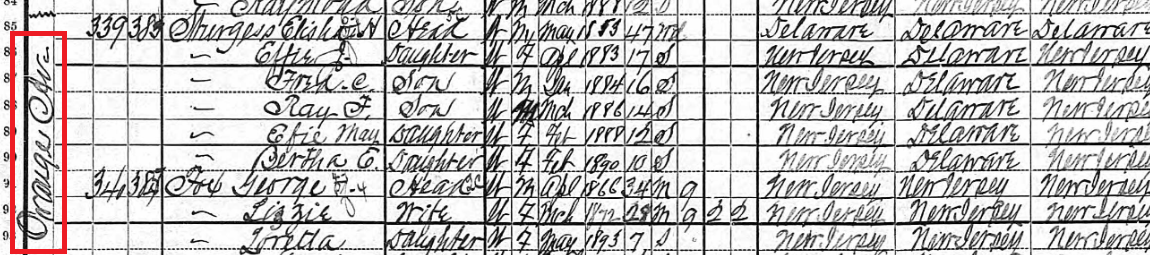 Raymond Son W M Mch 1888 12 S New Jersey New Jersey New Jersey
Orange Ave
339 383 Sturgess Elisha H Head W M May 1853 47 Wd Delaware Delaware Delaware
86 — Effie J. Daughter W F Apl 1883 17 S New Jersey Delaware New Jersey
87 — Fred. C. Son W M Jan 1884 16 S New Jersey Delaware New Jersey
88 — Ray F. Son W M Mch 1886 14 S New Jersey Delaware New Jersey
— Etic May Daughter W F Feb 1888 12 S New Jersey Delaware New Jersey
— Bertha E. Daughter W F Feb 1890 10 S New Jersey Delaware New Jersey
340 384 Fox George Head W M Apl 1866 34 M 9 New Jersey New Jersey New Jersey
— Lizzie Wife W F Mch 1872 28 M 9 2 2 New Jersey New Jersey New Jersey
— Loretta Daughter W F May 1893 7 S New Jersey New Jersey New Jersey